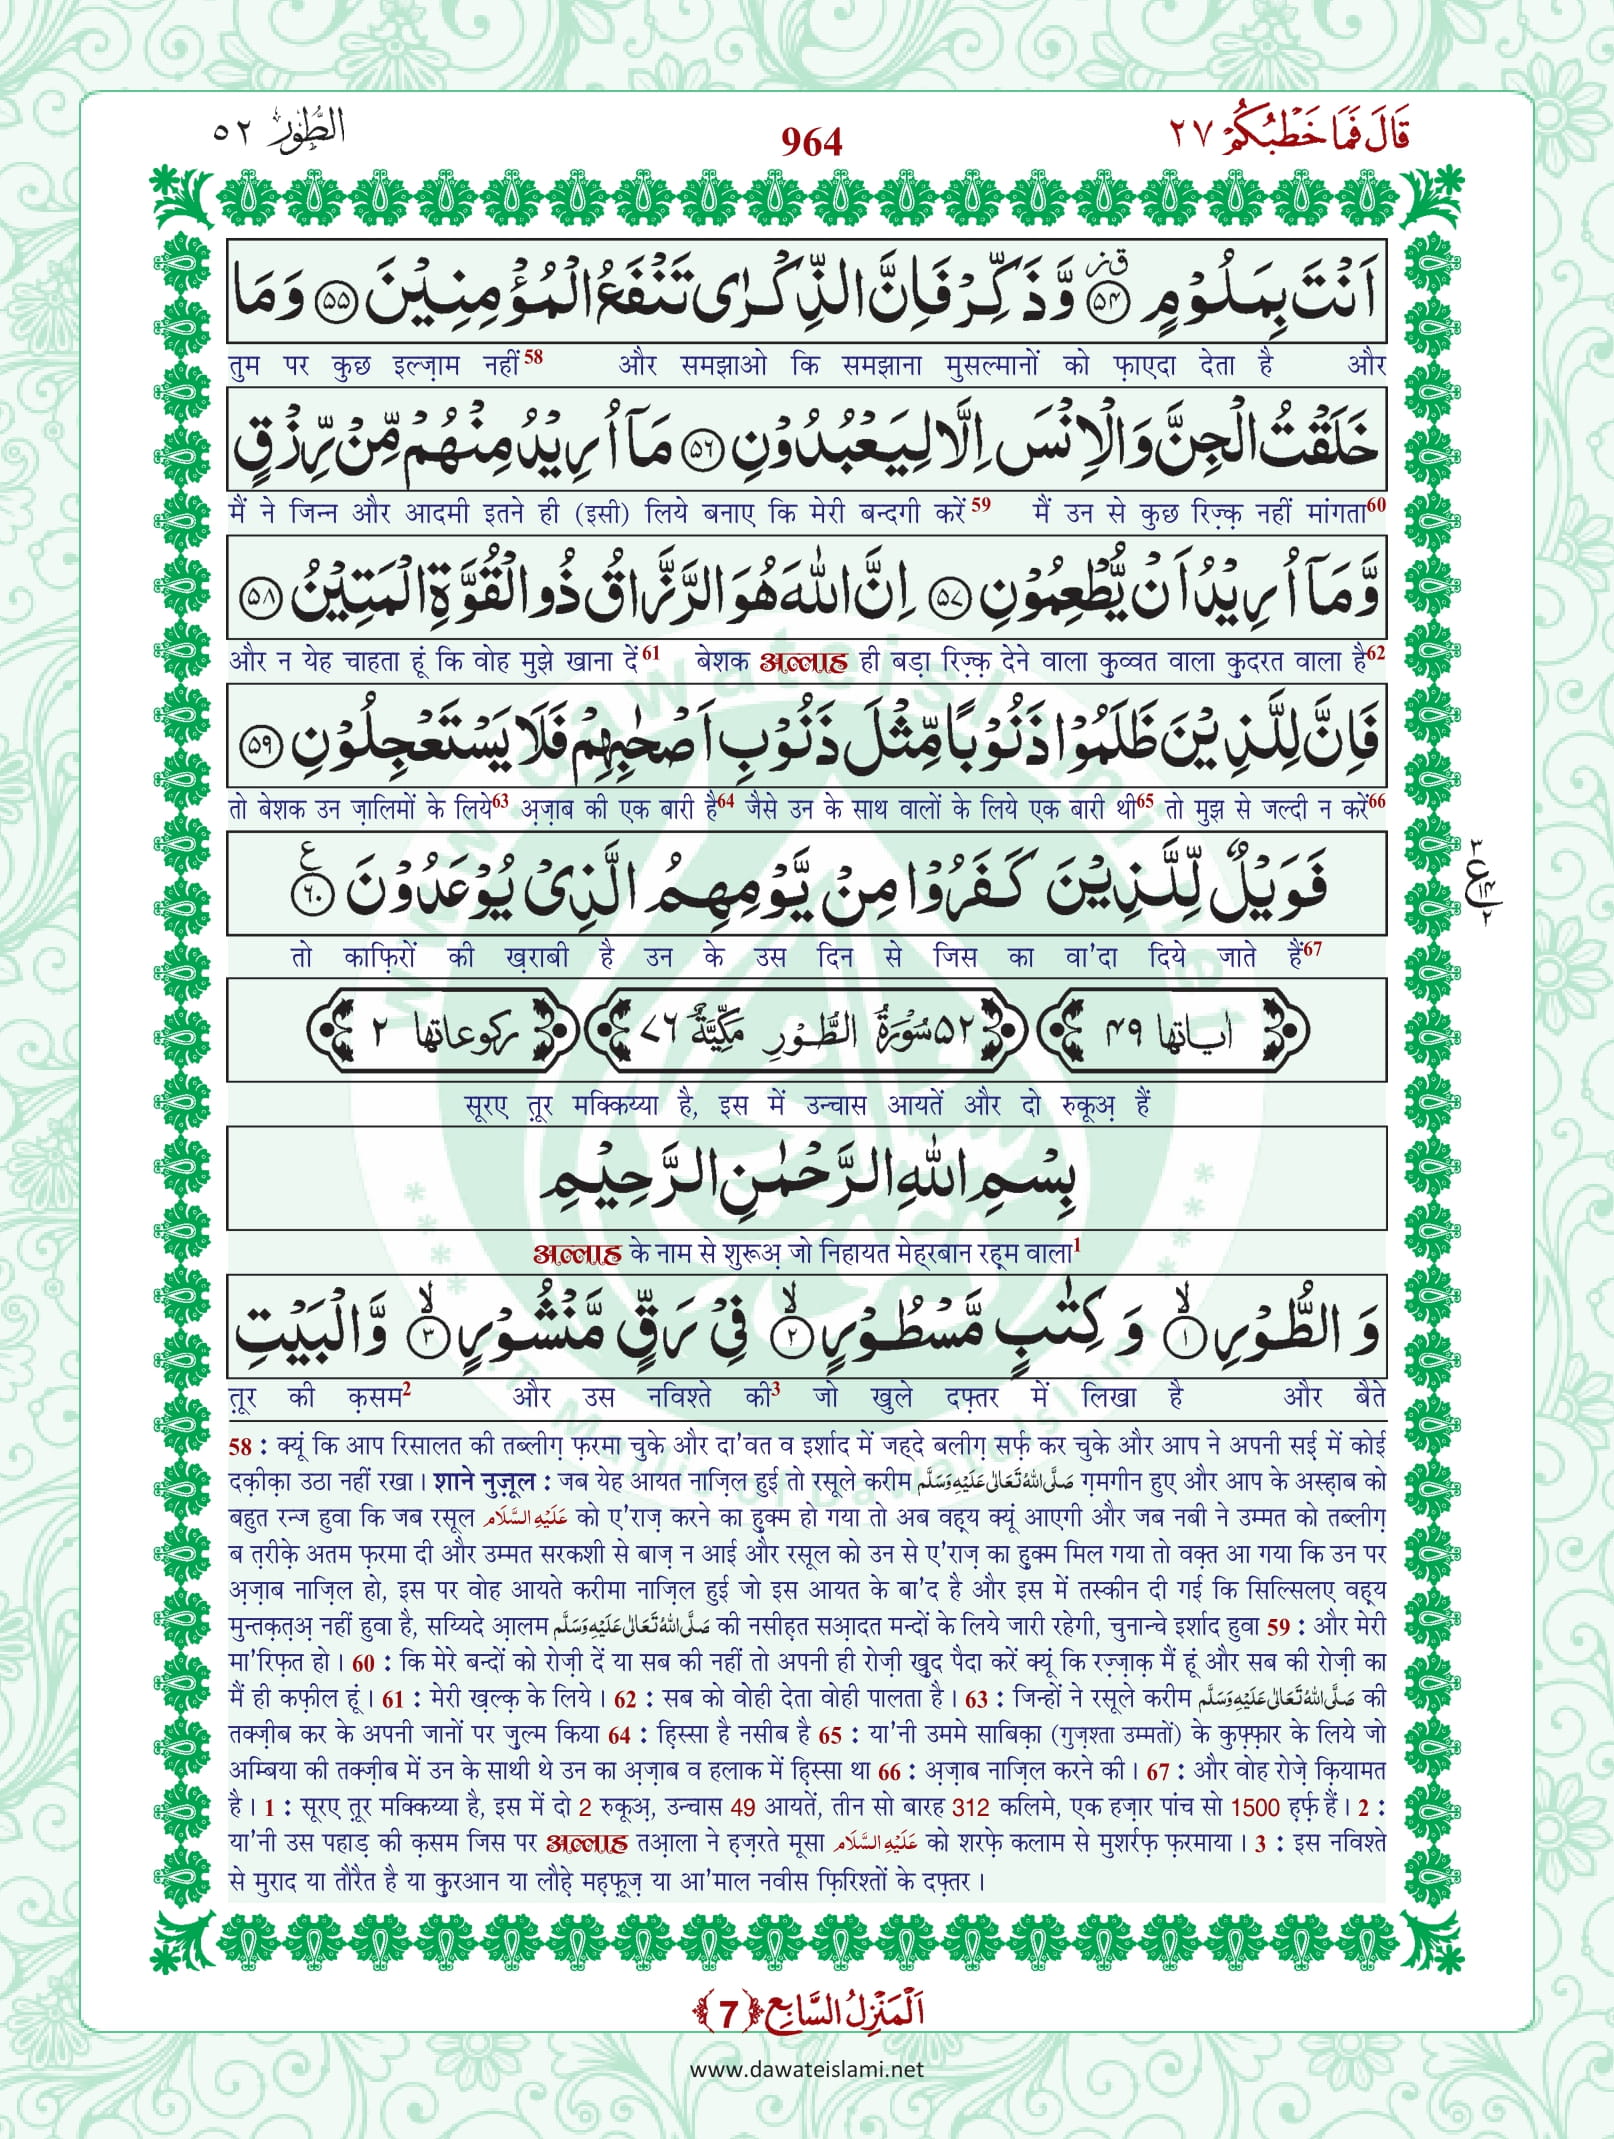 قَالَ فَمَا خَطْبُكُمْ ٢٧
964
الطُّوْر ٥٢
اَنْتَ بِمَلُوْمٍ ﴿۵۴﴾ وَّ ذَكِّرْ فَاِنَّ الذِّكْرٰى تَنْفَعُ الْمُؤْمِنِیْنَ ﴿۵۵﴾ وَ مَا
तुम पर कुछ इल्ज़ाम नहीं58 और समझाओ कि समझाना मुसल्मानों को फ़ाएदा देता है और
خَلَقْتُ الْجِنَّ وَ الْاِنْسَ اِلَّا لِیَعْبُدُوْنِ ﴿۵۶﴾ مَاۤ اُرِیْدُ مِنْهُمْ مِّنْ رِّزْقٍ
मैं ने जिन्न और आदमी इतने ही (इसी) लिये बनाए कि मेरी बन्दगी करें59 मैं उन से कुछ रिज़्क़ नहीं मांगता60
وَّ مَاۤ اُرِیْدُ اَنْ یُّطْعِمُوْنِ ﴿۵۷﴾ اِنَّ اللّٰهَ هُوَ الرَّزَّاقُ ذُو الْقُوَّةِ الْمَتِیْنُ ﴿۵۸﴾
और न येह चाहता हूं कि वोह मुझे खाना दें61 बेशक अल्लाह ही बड़ा रिज़्क़ देने वाला कुव्वत वाला कुदरत वाला है62
فَاِنَّ لِلَّذِیْنَ ظَلَمُوْا ذَنُوْبًا مِّثْلَ ذَنُوْبِ اَصْحٰبِهِمْ فَلَا یَسْتَعْجِلُوْنِ ﴿۵۹﴾
तो बेशक उन ज़ालिमों के लिये63 अ़ज़ाब की एक बारी है64 जैसे उन के साथ वालों के लिये एक बारी थी65 तो मुझ से जल्दी न करें66
فَوَیْلٌ لِّلَّذِیْنَ كَفَرُوْا مِنْ یَّوْمِهِمُ الَّذِیْ یُوْعَدُوْنَ ﴿۶۰﴾
तो काफ़िरों की ख़राबी है उन के उस दिन से जिस का वा'दा दिये जाते हैं67
اٰیاتها ۴۹ ۵۲ سُوْرَةُ الطُّوْرِ مَكِّیَّةٌ ۷۶ ركوعاتها ۲
सूरए तूर मक्किय्या है, इस में उन्चास आयतें और दो रुकूअ़ हैं
بِسْمِ اللّٰهِ الرَّحْمٰنِ الرَّحِیْمِ
अल्लाह के नाम से शुरूअ़ जो निहायत मेहरबान रह़म वाला1
وَ الطُّوْرِ ﴿۱﴾ وَ كِتٰبٍ مَّسْطُوْرٍ ﴿۲﴾ فِیْ رَقٍّ مَّنْشُوْرٍ ﴿۳﴾ وَّ الْبَیْتِ
तूर की क़सम2 और उस नविश्ते की3 जो खुले दफ़्तर में लिखा है और बैते
58 : क्यूं कि आप रिसालत की तब्लीग़ फ़रमा चुके और दा'वत व इर्शाद में जह्दे बलीग़ सर्फ़ कर चुके और आप ने अपनी सई में कोई
दक़ीक़ा उठा नहीं रखा। शाने नुज़ूल : जब येह आयत नाज़िल हुई तो रसूले करीम صَلَّی اللّٰهُ تَعَالٰی عَلَیْهِ وَسَلَّم ग़मगीन हुए और आप के अस्ह़ाब को
बहुत रन्ज हुवा कि जब रसूल عَلَیْهِ السَّلَام को ए'राज़ करने का हुक्म हो गया तो अब वह़्य क्यूं आएगी और जब नबी ने उम्मत को तब्लीग़
ब त़रीक़े अतम फ़रमा दी और उम्मत सरकशी से बाज़ न आई और रसूल को उन से ए'राज़ का हुक्म मिल गया तो वक़्त आ गया कि उन पर
अ़ज़ाब नाज़िल हो, इस पर वोह आयते करीमा नाज़िल हुई जो इस आयत के बा'द है और इस में तस्कीन दी गई कि सिल्सिलए वह़्य
मुन्क़त़अ़ नहीं हुवा है, सय्यिदे आ़लम صَلَّی اللّٰهُ تَعَالٰی عَلَیْهِ وَسَلَّم की नसीह़त सआ़दत मन्दों के लिये जारी रहेगी, चुनान्चे इर्शाद हुवा 59 : और मेरी
मा'रिफ़त हो। 60 : कि मेरे बन्दों को रोज़ी दें या सब की नहीं तो अपनी ही रोज़ी ख़ुद पैदा करें क्यूं कि रज़्ज़ाक़ मैं हूं और सब की रोज़ी का
मैं ही कफ़ील हूं। 61 : मेरी ख़ल्क़ के लिये। 62 : सब को वोही देता वोही पालता है। 63 : जिन्हों ने रसूले करीम صَلَّی اللّٰهُ تَعَالٰی عَلَیْهِ وَسَلَّم की
तक्ज़ीब कर के अपनी जानों पर ज़ुल्म किया 64 : हि़स्सा है नसीब है 65 : या'नी उममे साबिक़ा (गुज़श्ता उम्मतों) के कुफ़्फ़ार के लिये जो
अम्बिया की तक्ज़ीब में उन के साथी थे उन का अ़ज़ाब व हलाक में हि़स्सा था 66 : अ़ज़ाब नाज़िल करने की। 67 : और वोह रोज़े क़ियामत
है। 1 : सूरए तूर मक्किय्या है, इस में दो 2 रुकूअ़, उन्चास 49 आयतें, तीन सो बारह 312 कलिमे, एक हज़ार पांच सो 1500 ह़र्फ़ हैं। 2 :
या'नी उस पहाड़ की क़सम जिस पर अल्लाह तआ़ला ने ह़ज़रते मूसा عَلَیْهِ السَّلَام को शरफ़े कलाम से मुशर्रफ़ फ़रमाया। 3 : इस नविश्ते
से मुराद या तौरैत है या क़ुरआन या लौह़े मह़फ़ूज़ या आ'माल नवीस फ़िरिश्तों के दफ़्तर।
اَلْمَنْزِلُ السَّابِع ﴿7﴾
www.dawateislami.net